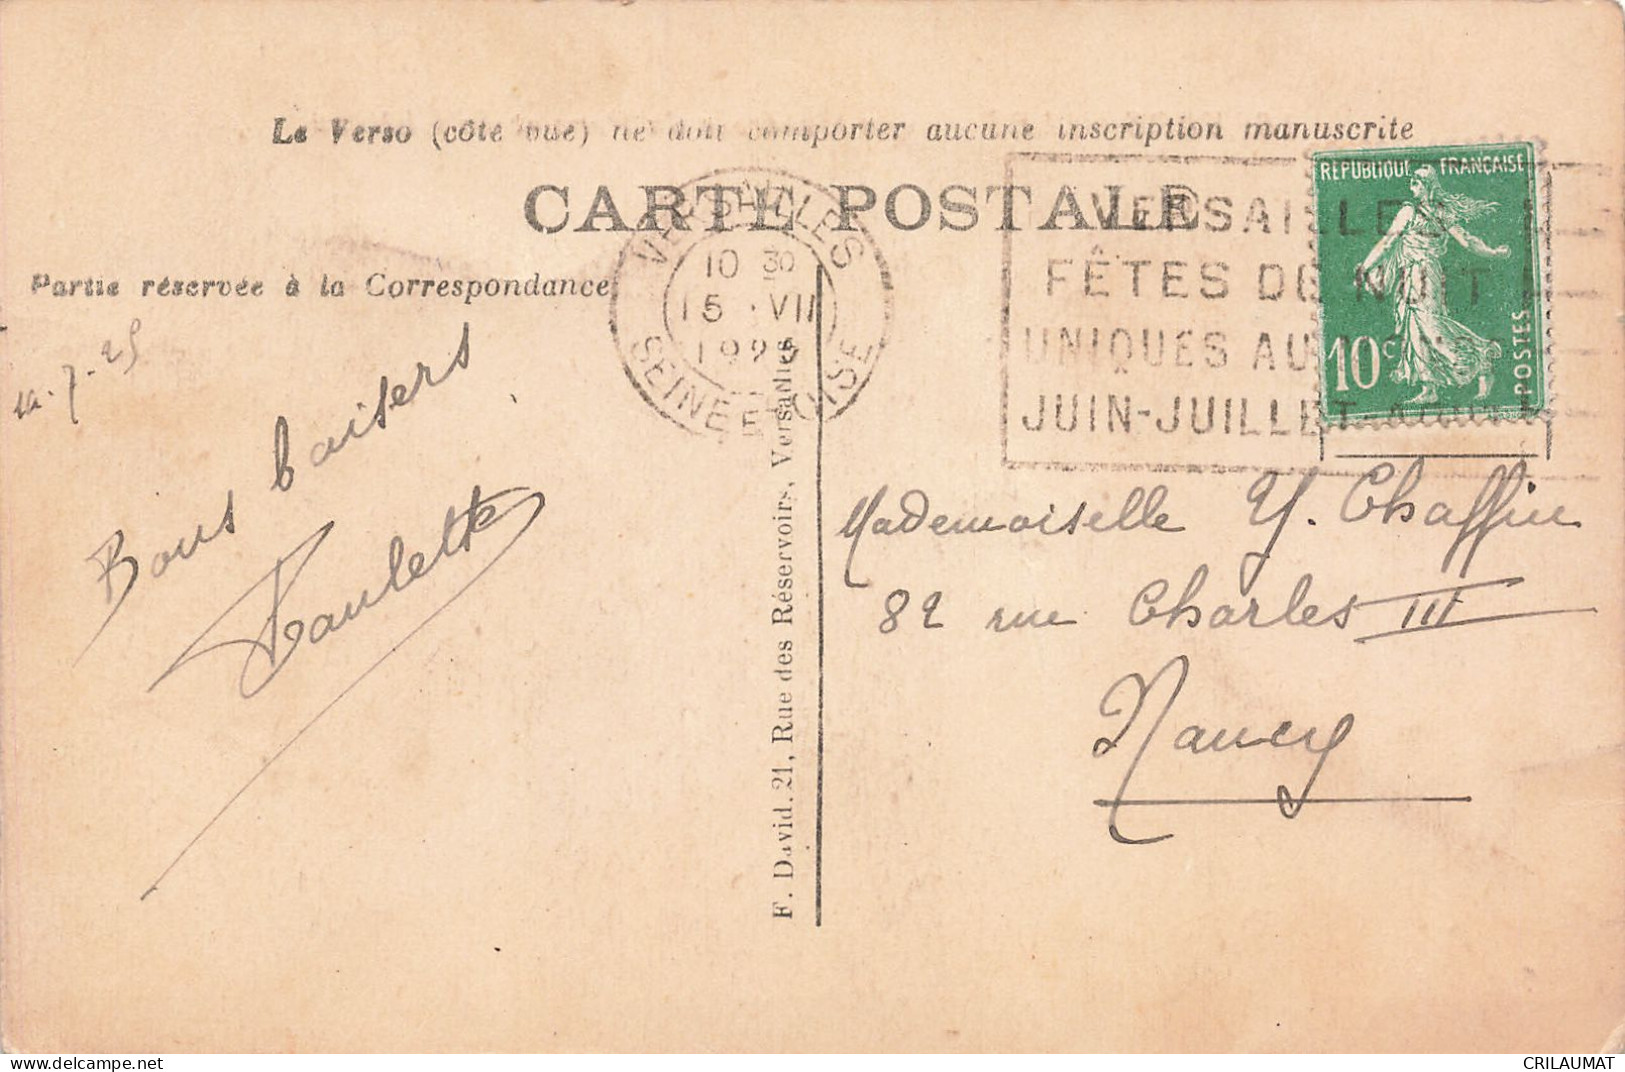 Le Verso (côte vue) ne doit comporter aucune inscription manuscrite
CARTE POSTALE
Partie réservée à la Correspondance
7-25
Bons baisers
Paulette
VERSAILLES
10 30
15 · VII
SEINE ET OISE
VERSAILLES
FÊTES DE NUIT
UNIQUES AU
JUIN-JUILLET
REPUBLIQUE FRANÇAISE
10c
POSTES
F. David. 21, Rue des Réservoirs, Versailles
Mademoiselle Y. Chaffin
82 rue Charles III
Nancy
delcampe.net
CRILAUMAT